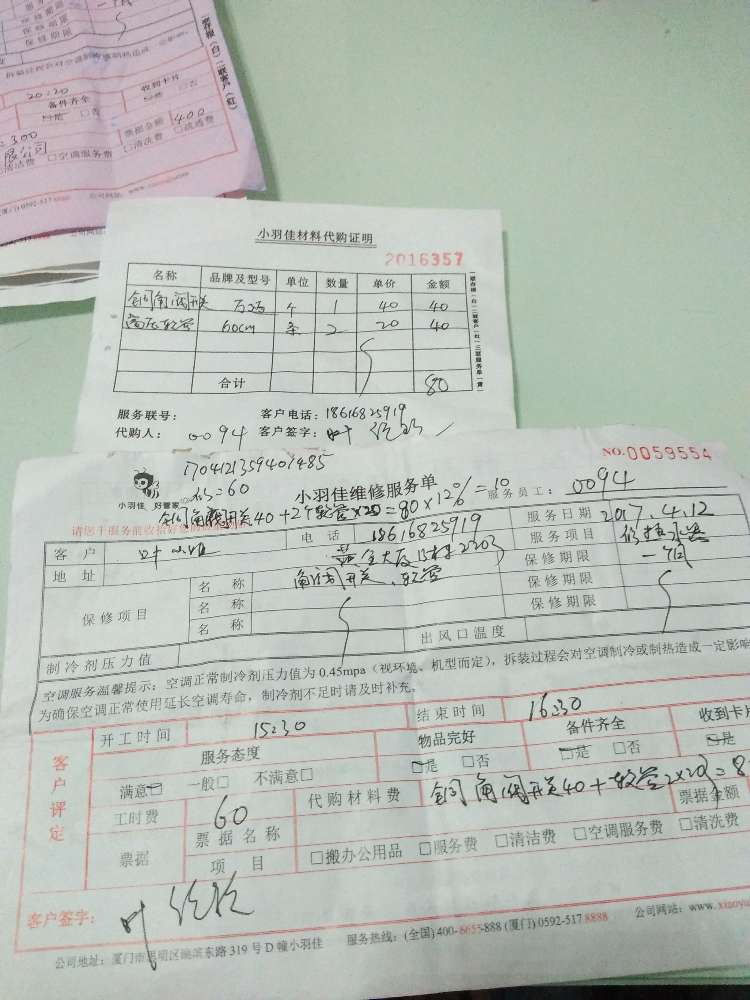 保修期限
保修期限
一月
拆装过程会对空调制冷或制热造成一定影响
客存根（白）二联客户（红）
20:20
备件齐全
收到卡片
是 □否
是 □否
票据金额 400
300
限公司
清洁费 □空调服务费 □清洗费 □疏通费
(厦门) 0592-517 8888
公司网站
小羽佳材料代购证明
2016357
名称 品牌及型号 单位 数量 单价 金额
铜角阀开关 个 1 40 40
高压软管 60cm 条 2 20 40
合计 80
服务联号： 客户电话：18616825919
代购人： 0094 客户签字： 叶
一联存根（白）二联客户（红）三联服务单（黄）
NO.0059554
1704121359401485
小羽佳 好管家
=60
小羽佳维修服务单
服务员工： 0094
请您于服务前收拾好
铜角阀开关40+2个软管×20=80×12%=10
客户 叶小姐 电话 18616825919 服务日期 2017.4.12
地址 黄金大厦 2203 服务项目 修热水器
保修项目 名称 角阀开关、软管 保修期限 一个月
名称 保修期限
名称 保修期限
制冷剂压力值 出风口温度
空调服务温馨提示：空调正常制冷剂压力值为0.45mpa（视环境、机型而定），拆装过程会对空调制冷或制热造成一定影响
为确保空调正常使用延长空调寿命，制冷剂不足时请及时补充。
客户评定
开工时间 15:30 结束时间 16:30
服务态度 物品完好 备件齐全 收到卡片
满意□ 一般□ 不满意□ □是 □否 □是 □否 □是
工时费 60 代购材料费 铜角阀开关40+软管2×20=8
票据 票据名称 票据金额
项目 □搬办公用品 □服务费 □清洁费 □空调服务费 □清洗费
客户签字： 叶
公司地址：厦门市思明区湖滨东路319号D幢小羽佳 服务热线：(全国)400-6655-888 (厦门)0592-517 8888 公司网站：www.xiaoyu